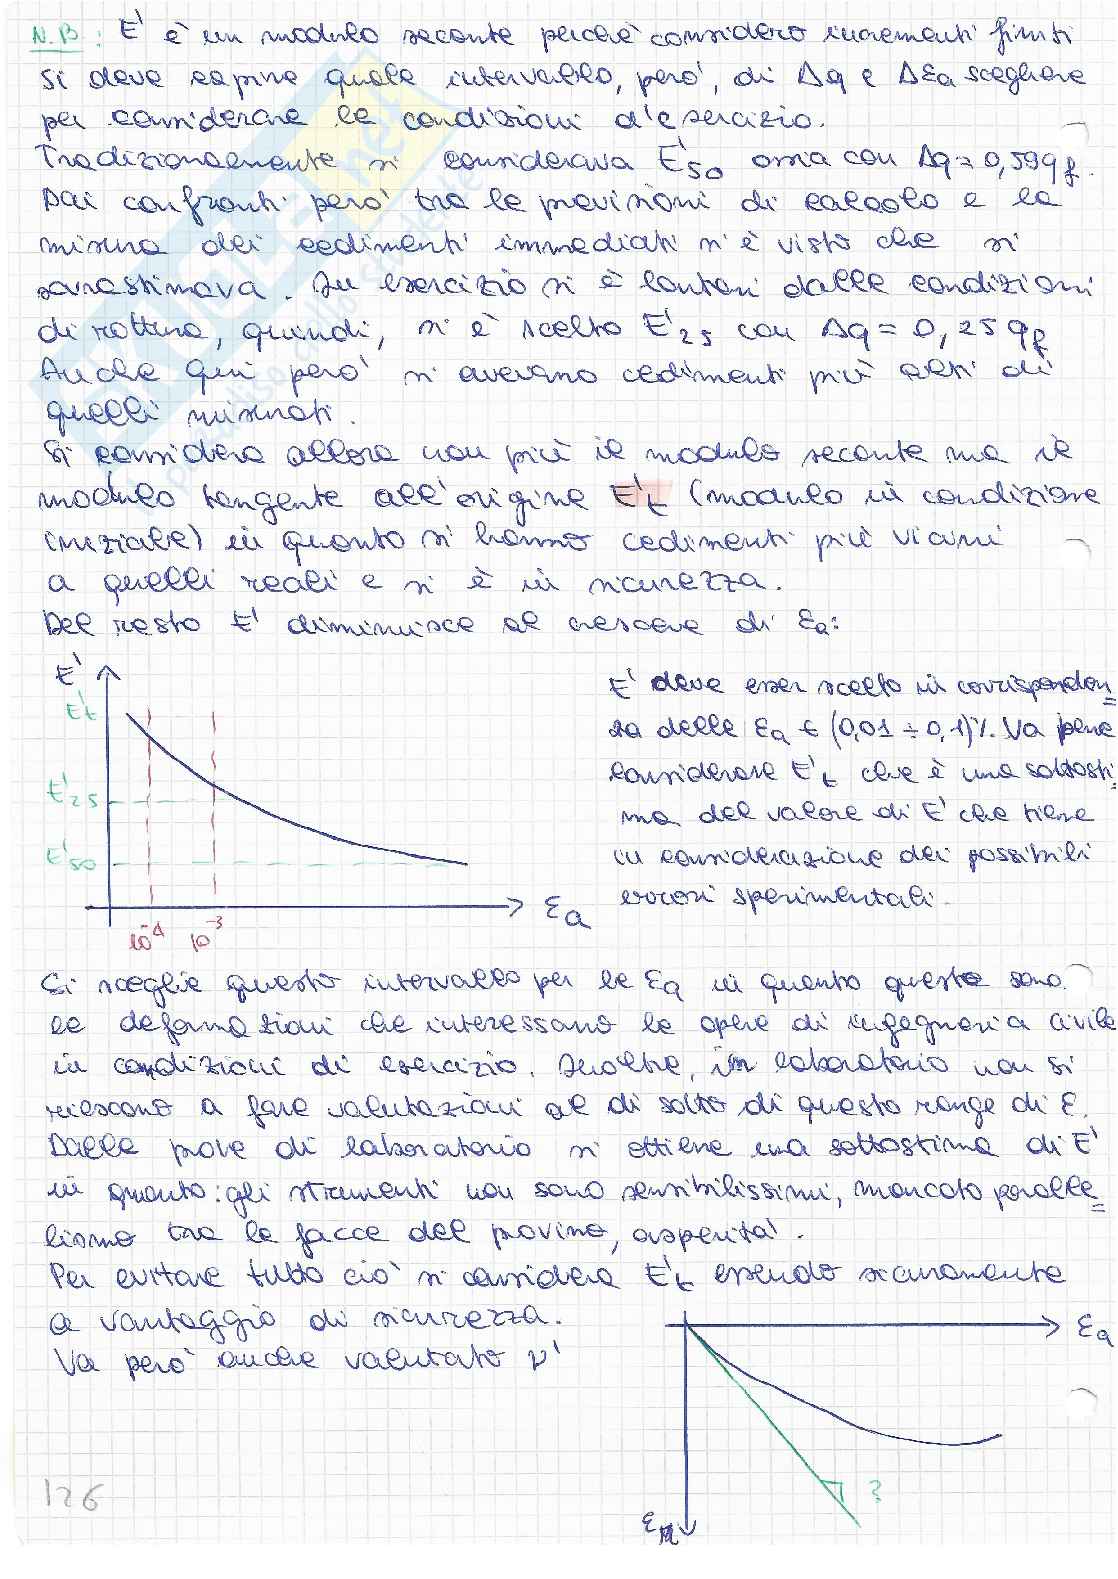 N.B: E' è un modulo secante perché considero incrementi finiti
Si deve capire quale intervallo, però, di Δq e Δεa scegliere
per considerare le condizioni d'esercizio.
Tradizionalmente si considerava E'50 ossia con Δq = 0,59qf.
Dai confronti però tra le previsioni di calcolo e la
misura dei cedimenti immediati si è visto che si
sovrastimava. In esercizio si è lontani dalle condizioni
di rottura, quindi, si è scelto E'25 con Δq = 0,25qf
Anche qui però si avevano cedimenti più alti di
quelli misurati.
Si considera allora non più il modulo secante ma il
modulo tangente all'origine E't (modulo in condizione
iniziale) in quanto si hanno cedimenti più vicini
a quelli reali e si è in sicurezza.
Del resto E' diminuisce al crescere di εa:
E'
E't
E'25
E'50
εa
10^-4 10^-3
E' deve esser scelto in corrisponden=
za delle εa ∈ (0,01 ÷ 0,1)%. Va bene
considerare E't che è una sottosti=
ma del valore di E' che tiene
in considerazione dei possibili
errori sperimentali.
Si sceglie questo intervallo per le εa in quanto queste sono
le deformazioni che interessano le opere di ingegneria civile
in condizioni di esercizio. Inoltre, in laboratorio non si
riescono a fare valutazioni al di sotto di questo range di ε.
Dalle prove di laboratorio si ottiene una sottostima di E'
in quanto: gli strumenti non sono sensibilissimi, mancato paralle=
lismo tra le facce del provino, asperità.
Per evitare tutto ciò si considera E't essendo sicuramente
a vantaggio di sicurezza.
Va però anche valutato ν'
εa
?
126